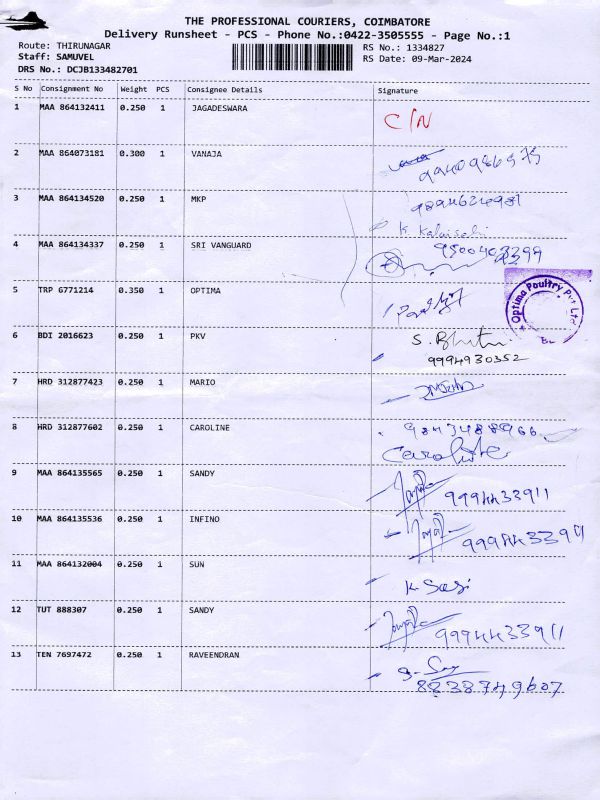 THE PROFESSIONAL COURIERS, COIMBATORE
Delivery Runsheet - PCS - Phone No.:0422-3505555 - Page No.:1
Route: THIRUNAGAR
RS No.: 1334827
Staff: SAMUVEL
RS Date: 09-Mar-2024
DRS No.: DCJB133482701
S No Consignment No Weight PCS Consignee Details Signature
1 MAA 864132411 0.250 1 JAGADESWARA C/N
2 MAA 864073181 0.300 1 VANAJA
3 MAA 864134520 0.250 1 MKP
4 MAA 864134337 0.250 1 SRI VANGUARD
5 TRP 6771214 0.350 1 OPTIMA
Optima Poultry Pvt Ltd
6 BDI 2016623 0.250 1 PKV
9994930352
7 HRD 312877423 0.250 1 MARIO
8 HRD 312877602 0.250 1 CAROLINE 9843488966
Caroline
9 MAA 864135565 0.250 1 SANDY 9994433911
10 MAA 864135536 0.250 1 INFINO 9994433911
11 MAA 864132004 0.250 1 SUN K Sasi
12 TUT 888307 0.250 1 SANDY 9994433911
13 TEN 7697472 0.250 1 RAVEENDRAN
8838749607